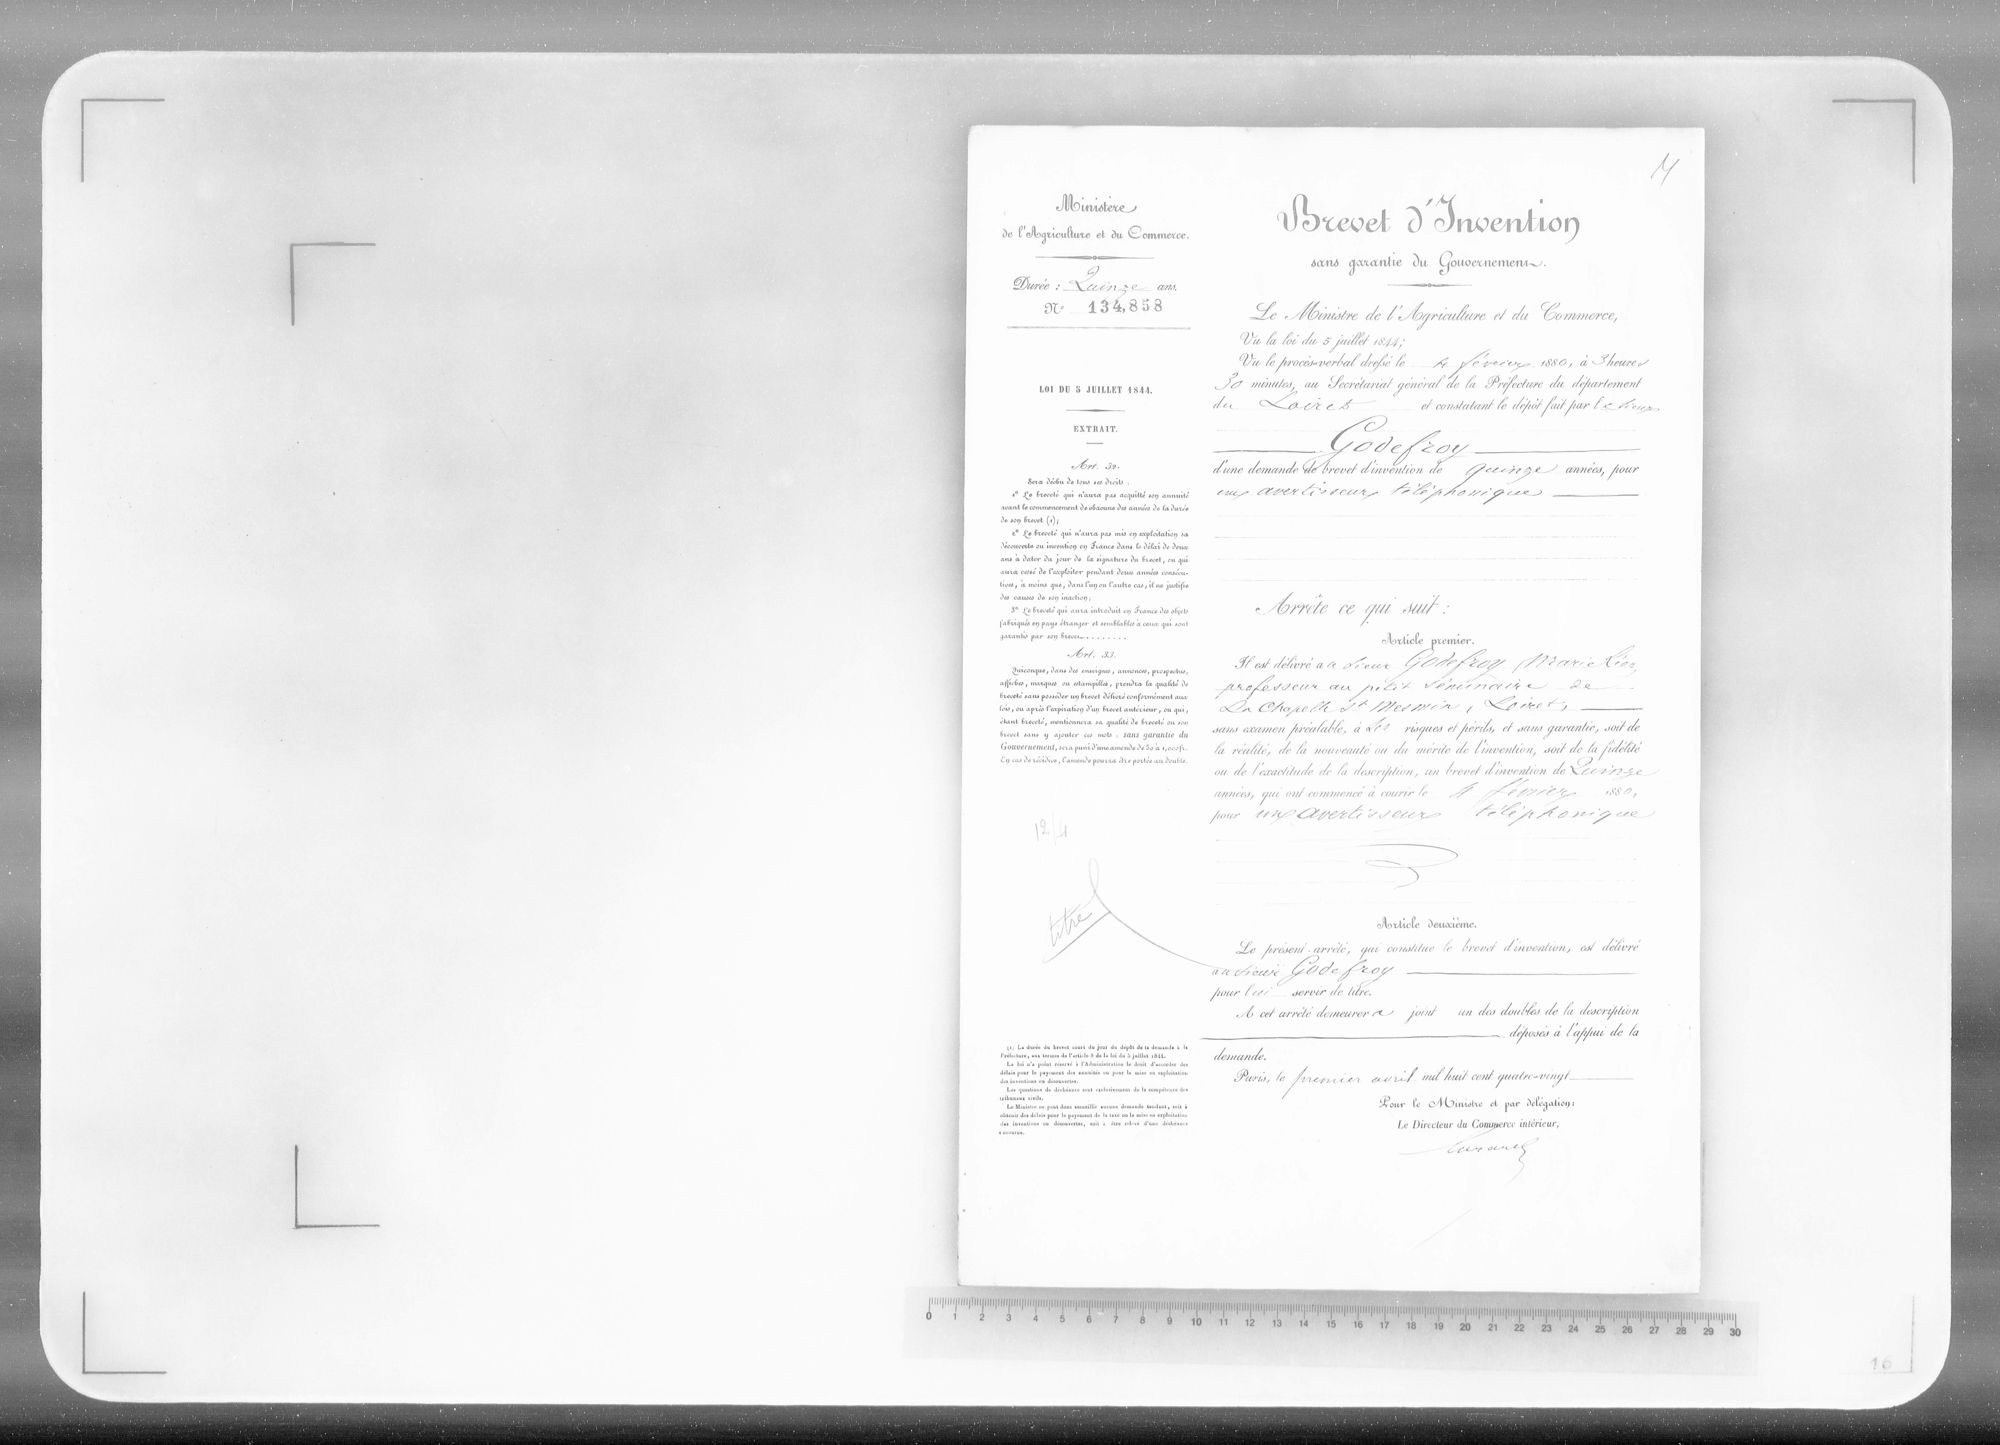 Ministère
de l'Agriculture et du Commerce.
Durée : Quinze ans.
N° 134,858
LOI DU 5 JUILLET 1844.
EXTRAIT.
Art. 32.
Sera déchu de tous ses droits :
1° Le breveté qui n'aura pas acquitté son annuité
avant le commencement de chacune des années de la durée
de son brevet (1);
2° Le breveté qui n'aura pas mis en exploitation sa
découverte ou invention en France dans le délai de deux
ans à dater du jour de la signature du brevet, ou qui
aura cessé de l'exploiter pendant deux années consécu-
tives, à moins que, dans l'un ou l'autre cas, il ne justifie
des causes de son inaction;
3° Le breveté qui aura introduit en France des objets
fabriqués en pays étranger et semblables à ceux qui sont
garantis par son brevet........
Art. 33.
Quiconque, dans des enseignes, annonces, prospectus,
affiches, marques ou estampilles, prendra la qualité de
breveté sans posséder un brevet délivré conformément aux
lois, ou après l'expiration d'un brevet antérieur, ou qui,
étant breveté, mentionnera sa qualité de breveté ou son
brevet sans y ajouter ces mots : sans garantie du
Gouvernement, sera puni d'une amende de 50 à 1,000 fr.
En cas de récidive, l'amende pourra être portée au double.
12/4
titre
(1) La durée du brevet court du jour du dépôt de la demande à la
Préfecture, aux termes de l'article 8 de la loi du 5 juillet 1844.
La loi n'a point réservé à l'Administration le droit d'accorder des
délais pour le payement des annuités ou pour la mise en exploitation
des inventions ou découvertes.
Les questions de déchéance sont exclusivement de la compétence des
tribunaux civils.
Le Ministre ne peut donc accueillir aucune demande tendant, soit à
obtenir des délais pour le payement de la taxe ou la mise en exploitation
des inventions ou découvertes, soit à être relevé d'une déchéance
encourue.
Brevet d'Invention
sans garantie du Gouvernement.
Le Ministre de l'Agriculture et du Commerce,
Vu la loi du 5 juillet 1844;
Vu le procès-verbal dressé le 4 février 1880, à 3 heures
30 minutes, au Secrétariat général de la Préfecture du département
du Loiret et constatant le dépôt fait par le Sieur
Godefroy
d'une demande de brevet d'invention de quinze années, pour
un avertisseur téléphonique
Arrête ce qui suit :
Article premier.
Il est délivré au Sieur Godefroy Marie Léon,
professeur au petit Séminaire de
La Chapelle St Mesmin, Loiret,
sans examen préalable, à ses risques et périls, et sans garantie, soit de
la réalité, de la nouveauté ou du mérite de l'invention, soit de la fidélité
ou de l'exactitude de la description, un brevet d'invention de Quinze
années, qui ont commencé à courir le 4 février 1880,
pour un avertisseur téléphonique
Article deuxième.
Le présent arrêté, qui constitue le brevet d'invention, est délivré
au Sieur Godefroy
pour lui servir de titre.
A cet arrêté demeurera joint un des doubles de la description
déposés à l'appui de la
demande.
Paris, le premier avril mil huit cent quatre-vingt
Pour le Ministre et par délégation:
Le Directeur du Commerce intérieur,
0 1 2 3 4 5 6 7 8 9 10 11 12 13 14 15 16 17 18 19 20 21 22 23 24 25 26 27 28 29 30
16